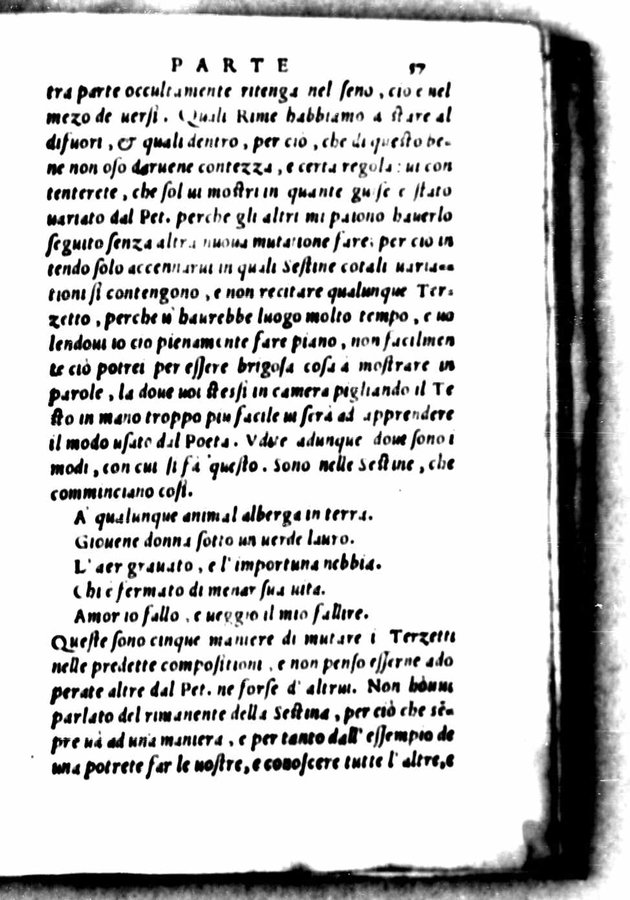 PARTE 57
tra parte occultamente ritenga nel ſeno, cio e nel
mezo de uerſi. Quali Rime habbiamo a ſtare al
difuori, & quali dentro, per ciò, che di queſto be-
ne non oſo daruene contezza, e certa regola: ui con
tenterete, che ſol ui moſtri in quante guiſe e ſtato
uariato dal Pet. perche gli altri mi paiono hauerlo
ſeguito ſenza altra nuoua mutatione fare; per cio in
tendo ſolo accennarui in quali Seſtine cotali uaria=
tioni ſi contengono, e non recitare qualunque Ter-
zetto, perche u' haurebbe luogo molto tempo, e uo
lendoui io cio pienamente fare piano, non facilmen
te ciò potrei per eſſere brigoſa coſa à moſtrare in
parole, la doue uoi ſteſſi in camera pigliando il Te
ſto in mano troppo piu facile ui ſerà ad apprendere
il modo uſato dal Poeta. Vdite adunque doue ſono i
modi, con cui ſi fà queſto. Sono nelle Seſtine, che
comminciano coſi.
A' qualunque animal alberga in terra.
Giouene donna ſotto un uerde lauro.
L' aer grauato, e l' importuna nebbia.
Chi è fermato di menar ſua uita.
Amor io fallo, e ueggio il mio fallire.
Queſte ſono cinque maniere di mutare i Terzetti
nelle predette compoſitioni, e non penſo eſſerne ado
perate altre dal Pet. ne forſe d' altrui. Non hòuui
parlato del rimanente della Seſtina, per ciò che sē=
pre uà ad una maniera, e per tanto dall' eſſempio de
una potrete far le uoſtre, e conoſcere tutte l' altre, e